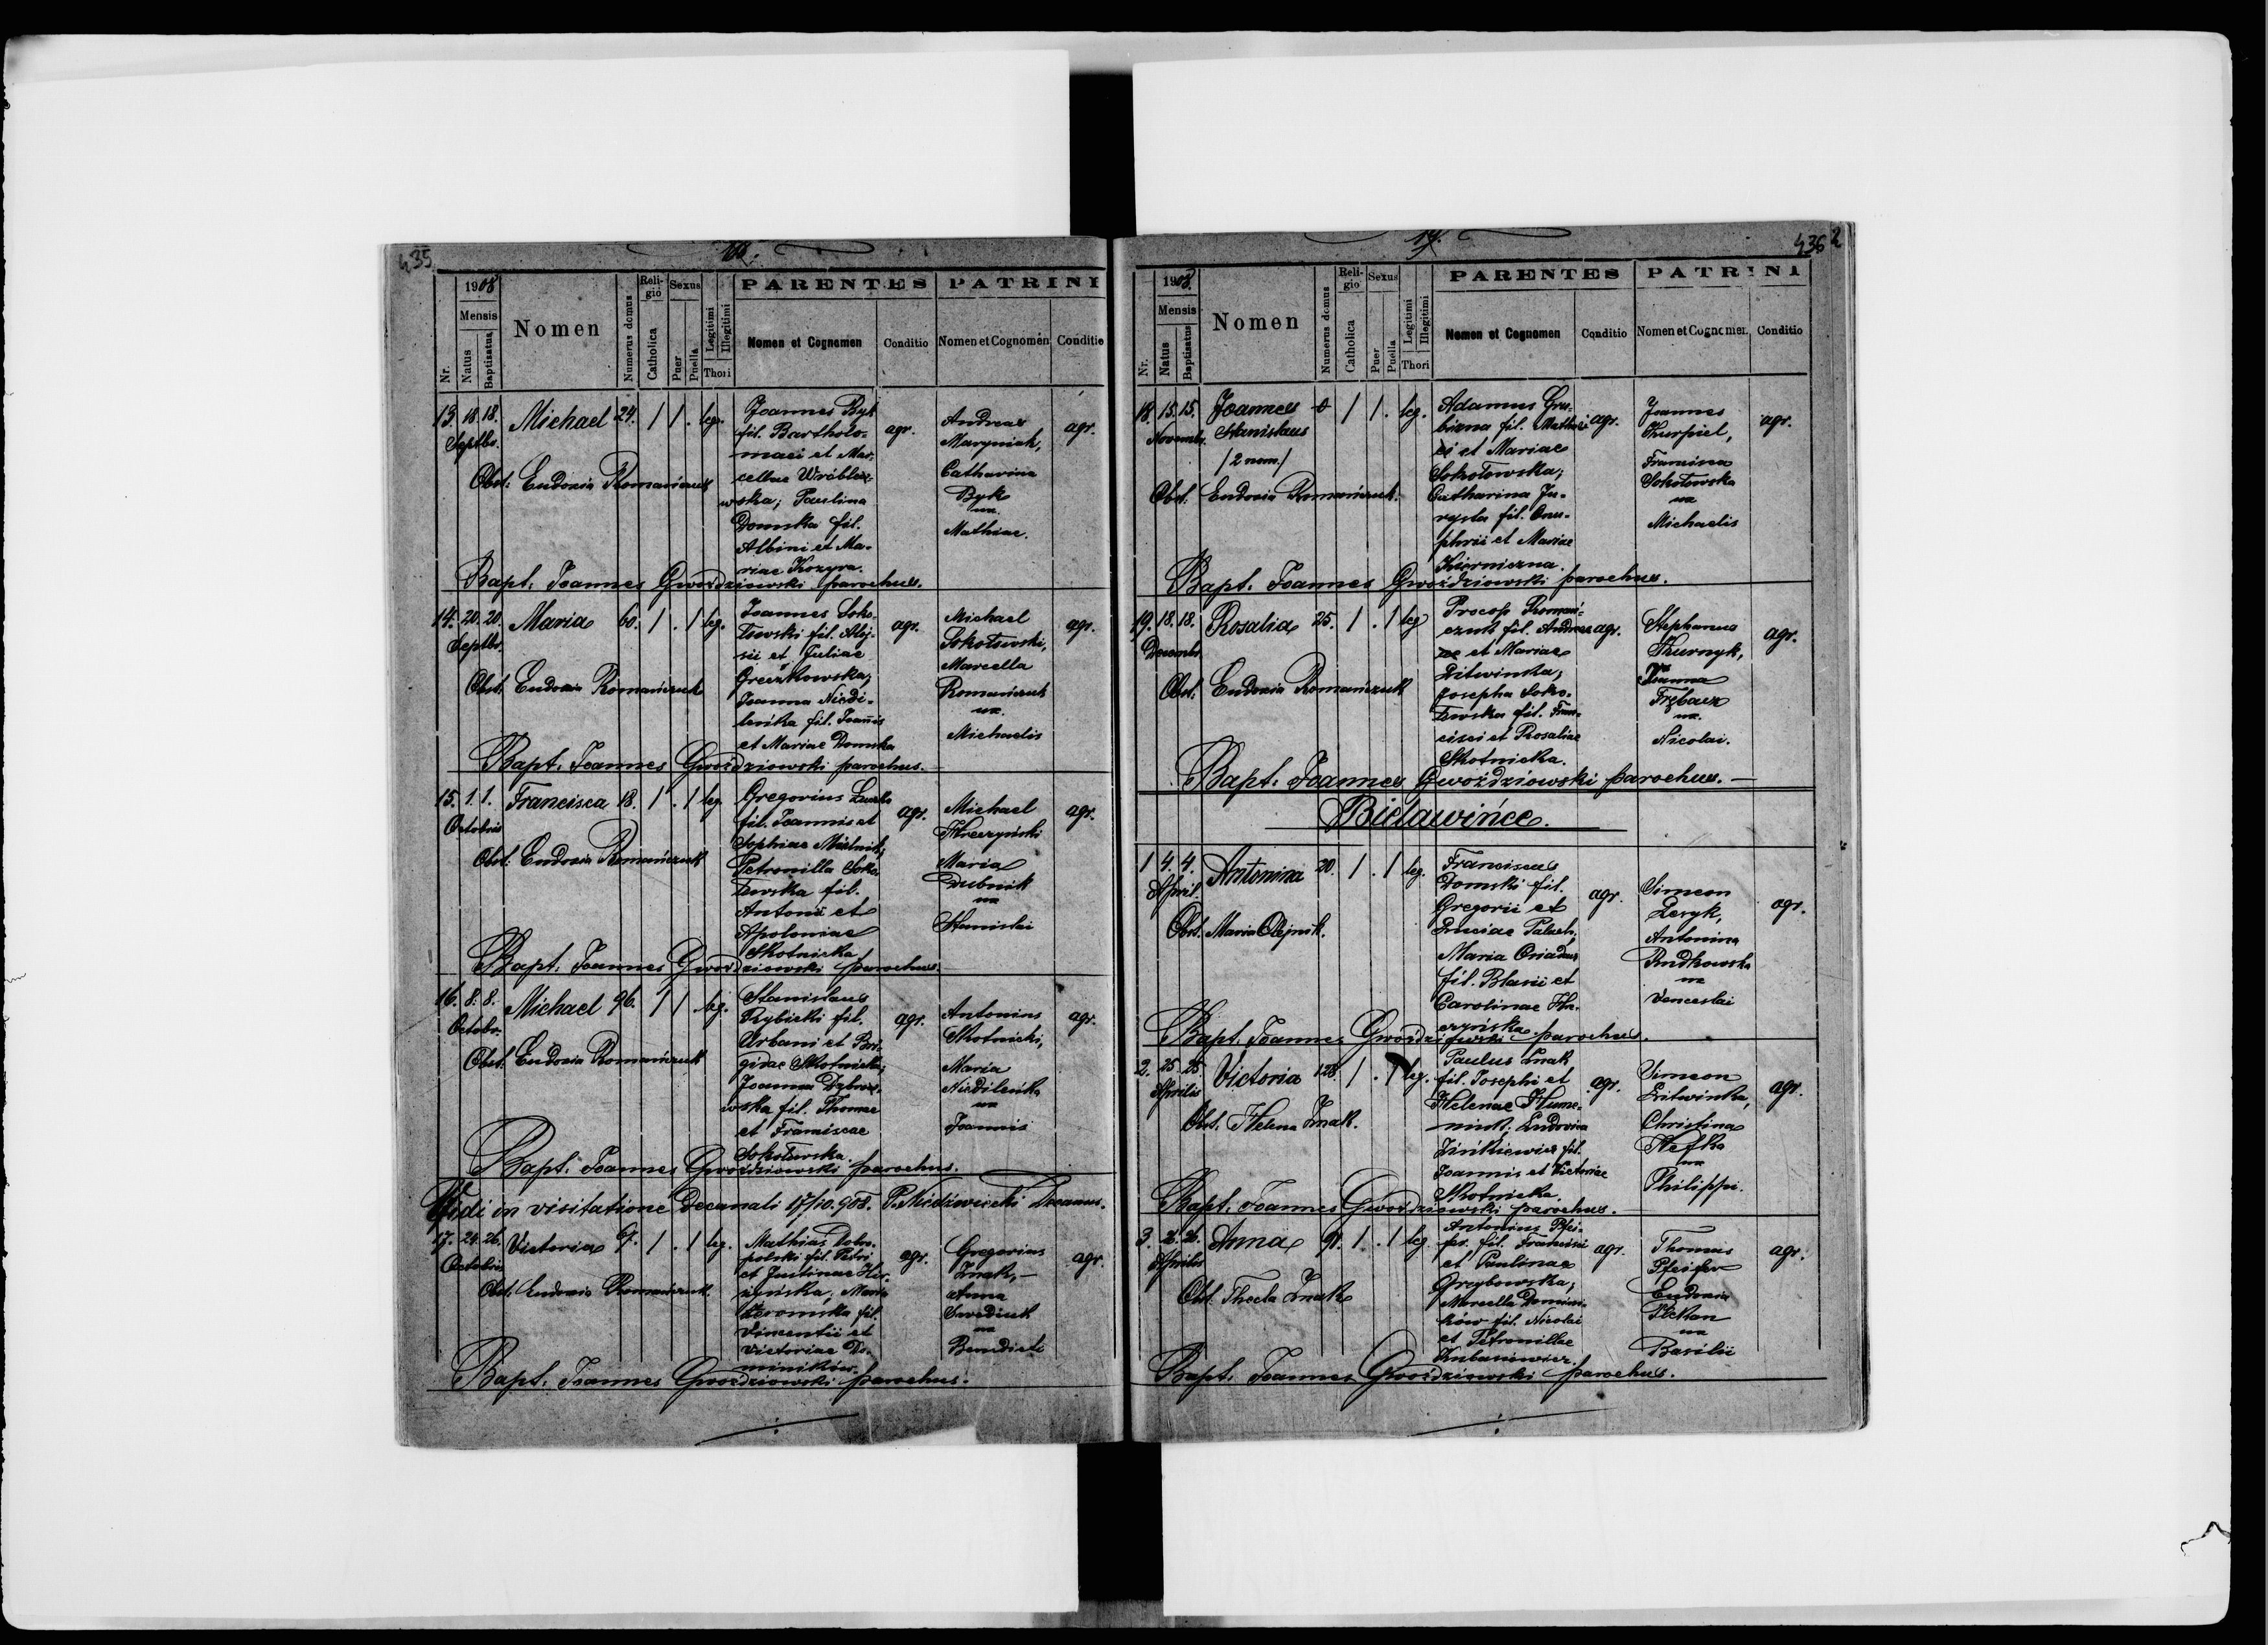 435
1908
Mensis
Nr.
Natus
Baptisatus
Nomen
Numerus domus
Religio
Catholica
Sexus
Puer
Puella
Legitimi
Illegitimi
Thori
PARENTES
Nomen et Cognomen
Conditio
PATRINI
Nomen et Cognomen
Conditio
13. 18. 18. Michael 24. 1 1 . leg. Joannes Byk agr. Andreas agr.
Septbr.
fil. Bartholo-
Maryniak,
maei et Mar-
Catharina
Obst. Eudoxia Romańczuk
cellae Wróblew-
Byk
wska; Paulina
ux.
Domska fil.
Mathiae.
Albini et Ma-
riae Kozyra.
Bapt. Joannes Gwoździowski parochus.
14. 20. 20. Maria 60. 1 . 1 leg. Joannes Soko- agr. Michael agr.
Septbr.
łowski fil. Aloj-
Sokołowski,
sii et Juliae
Marcella
Obst. Eudoxia Romańczuk
Romańczuk
Joanna Niedi-
ux.
leńka fil. Joannis
Michaelis
et Mariae Domska
Bapt. Joannes Gwoździowski parochus.
15. 1. 1. Francisca 18. 1 . 1 leg. Gregorius agr. Michael agr.
Octobris
fil. Joannis et
Hreczyński
Sophiae
Maria
Obst. Eudoxia Romańczuk
Petronilla Soko-
Dubnik
łowska fil.
ux
Antonii et
Stanislai
Apoloniae
Skotnicka
Bapt. Joannes Gwoździowski parochus.
16. 8. 8. Michael 96. 1 1 leg. Stanislaus agr. Antonius agr.
Octobr.
Rybicki fil.
Skotnicki,
Urbani et Bri-
Maria
Obst. Eudoxia Romańczuk
gidae Skotnicka;
Niedileńka
Joanna Dąbro-
ux
wska fil. Thomae
Joannis
et Franciscae
Sokołowska.
Bapt. Joannes Gwoździowski parochus.
Vidi in visitatione decanali 17/10. 908. P. Niedźwiecki Decanus.
17. 24. 26. Victoria 67. 1 . 1 leg. Mathias Dobro- agr. Gregorius agr.
Octobris
polski fil. Petri
Żmak,
et Justinae
Anna
Obst. Eudoxia Romańczuk.
Maria
ux
fil.
Benedicti
Vincentii et
Victoriae Do-
miników.
Bapt. Joannes Gwoździowski parochus.
436
1908.
Mensis
Nr.
Natus
Baptisatus
Nomen
Numerus domus
Religio
Catholica
Sexus
Puer
Puella
Legitimi
Illegitimi
Thori
PARENTES
Nomen et Cognomen
Conditio
PATRINI
Nomen et Cognomen
Conditio
18. 15. 15. Joannes 1 1 . leg. Adamus Gru- agr. Joannes agr.
Novembr.
Stanislaus
bizna fil. Mathiae
Kurpiel,
/2 nom./
et Mariae
Francisca
Sokołowska;
Sokołowska
Obst. Eudoxia Romańczuk.
Catharina Ju-
ux
rysta fil. Onu-
Michaelis
phrii et Mariae
Kierniczna.
Bapt. Joannes Gwoździowski parochus.
19. 18. 18. Rosalia 25. 1 . 1 leg Procop Romań- agr. Stephanus agr.
Decembr.
czuk fil. Andreae
et Mariae
Joanna
Obst. Eudoxia Romańczuk
Litwinska;
Trębacz
Josepha Soko-
ux.
łowska fil. Fran-
Nicolai.
cisci et Rosaliae
Skotnicka.
Bapt. Joannes Gwoździowski parochus.
Bielawińce.
1 4. 4. Antonina 20. 1 . 1 leg. Franciscus agr. Simeon agr.
April.
Domski fil.
Gregorii et
Antonina
Obst. Maria Olejnik.
Luciae Palach.
Rudkowska
Maria Osiadacz
ux
fil. Blasii et
Venceslai
Carolinae Hre-
czyńska.
Bapt. Joannes Gwoździowski parochus.
2. 25. 25. Victoria 128. 1 . 1 leg. Paulus Żmak agr. Simeon agr.
Aprilis
fil. Josephi et
Litwinka,
Helenae Hume-
Christina
Obst. Helena Żmak.
niuk. Ludovica
Hefko
Zinkiewicz fil.
ux
Joannis et Victoriae
Philippi.
Skotnicka.
Bapt. Joannes Gwoździowski parochus.
3. 26. 26. Anna 91. 1 . 1 leg Antonius Pfei- agr. Thomas agr.
Aprilis
fer fil. Francisci
Pfeifer
et Paulinae
Eudoxia
Obst. Thecla Żmak
Grzybowska;
Marcella Domini-
ux
ków fil. Nicolai
Basilii
et Petronillae
Kubasiewicz.
Bapt. Joannes Gwoździowski parochus.